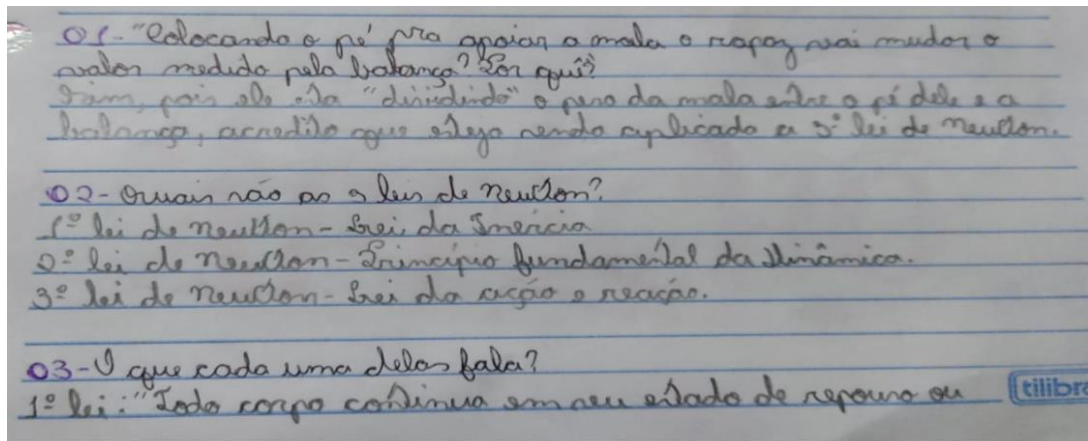 01-"Colocando o pé pra apoiar a mala o rapaz vai mudar o
valor medido pela balança? Por quê?
Sim, pois ele esta "dividindo" o peso da mala entre o pé dele e a
balança, acredito que esteja sendo aplicado a 3ª lei de newton.
02- Quais são as 3 leis de newton?
1ª lei de newton- Lei da Inércia
2ª lei de newton- Princípio fundamental da dinâmica.
3ª lei de newton- Lei da ação e reação.
03- O que cada uma delas fala?
1ª lei: "Todo corpo continua em seu estado de repouso ou
tilibra